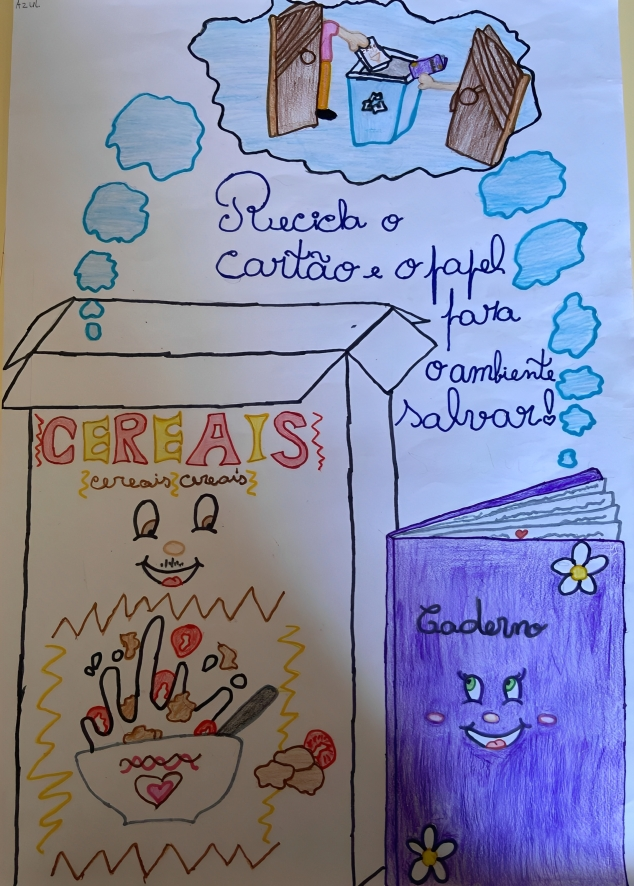 Azul
Recicla o
cartão e o papel
para
o ambiente
salvar!
CEREAIS
cereais cereais
Caderno